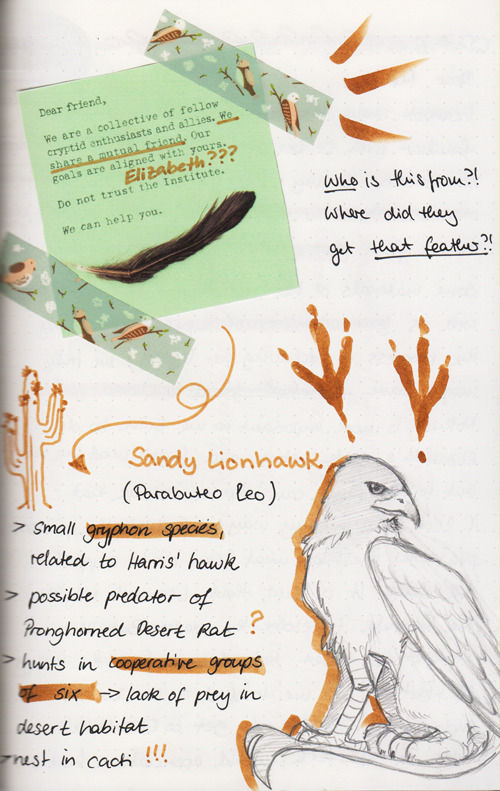 Dear friend,
We are a collective of fellow
cryptid enthusiasts and allies. We
share a mutual friend. Our
goals are aligned with yours.
Elizabeth???
Do not trust the Institute.
We can help you.
Who is this from?!
Where did they
get that feather?!
Sandy Lionhawk
(Parabuteo Leo)
> small gryphon species,
related to Harris' hawk
> possible predator of
Pronghorned Desert Rat ?
> hunts in cooperative groups
of six → lack of prey in
desert habitat
> nest in cacti !!!